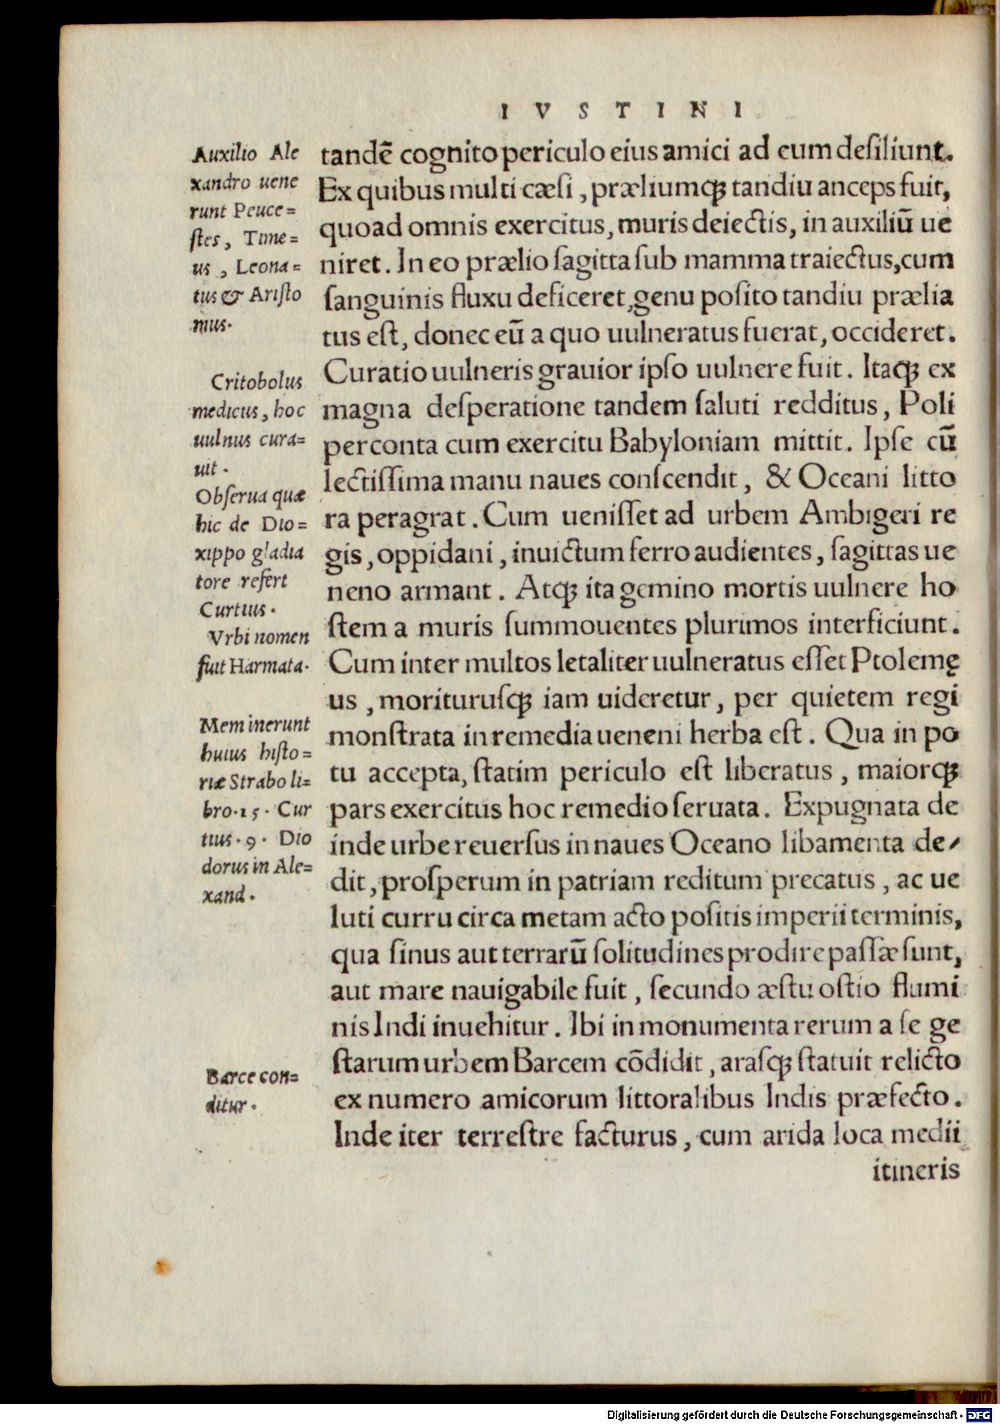 IVSTINI
Auxilio Ale
xandro uene
runt Peuce=
ſtes, Time=
us, Leona=
tus & Ariſto
mus.
Critobolus
medicus, hoc
uulnus cura=
uit.
Obſerua quæ
hic de Dio=
xippo gladia
tore refert
Curtius.
Vrbi nomen
fuit Harmata.
Meminerunt
huius hiſto=
riæ Strabo li=
bro.15. Cur
tius.9. Dio
dorus in Ale=
xand.
Barce con=
ditur.
tandẽ cognito periculo eius amici ad eum deſiliunt.
Ex quibus multi cæſi, præliumqꝫ tandiu anceps fuit,
quoad omnis exercitus, muris deiectis, in auxiliũ ue
niret. In eo prælio ſagitta ſub mamma traiectus, cum
ſanguinis fluxu deficeret, genu poſito tandiu prælia
tus eſt, donec eũ a quo uulneratus fuerat, occideret.
Curatio uulneris grauior ipſo uulnere fuit. Itaqꝫ ex
magna deſperatione tandem ſaluti redditus, Poli
perconta cum exercitu Babyloniam mittit. Ipſe cũ
lectiſſima manu naues conſcendit, & Oceani litto
ra peragrat. Cum ueniſſet ad urbem Ambigeri re
gis, oppidani, inuictum ferro audientes, ſagittas ue
neno armant. Atqꝫ ita gemino mortis uulnere ho
ſtem a muris ſummouentes plurimos interficiunt.
Cum inter multos letaliter uulneratus eſſet Ptolemę
us, moriturusqꝫ iam uideretur, per quietem regi
monſtrata in remedia ueneni herba eſt. Qua in po
tu accepta, ſtatim periculo eſt liberatus, maiorqꝫ
pars exercitus hoc remedio ſeruata. Expugnata de
inde urbe reuerſus in naues Oceano libamenta de⸗
dit, proſperum in patriam reditum precatus, ac ue
luti curru circa metam acto poſitis imperii terminis,
qua ſinus aut terrarũ ſolitudines prodire paſſæ ſunt,
aut mare nauigabile fuit, ſecundo æſtu oſtio flumi
nis Indi inuehitur. Ibi in monumenta rerum a ſe ge
ſtarum urbem Barcem cõdidit, araſqꝫ ſtatuit relicto
ex numero amicorum littoralibus Indis præfecto.
Inde iter terreſtre facturus, cum arida loca medii
itineris
Digitalisierung gefördert durch die Deutsche Forschungsgemeinschaft - DFG